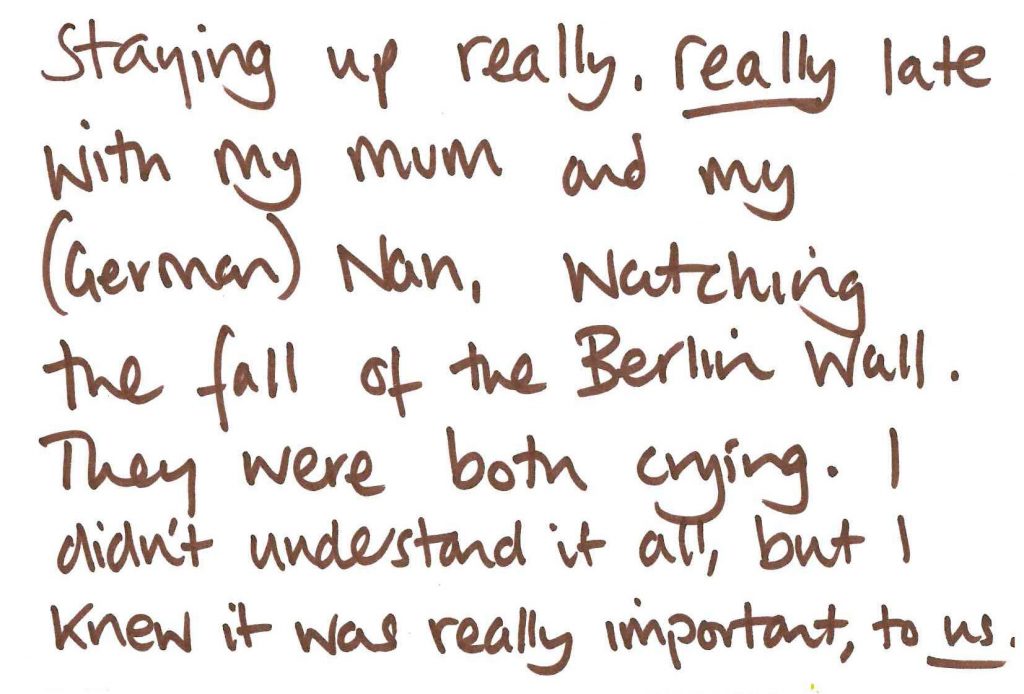 Staying up really, really late
with my mum and my
(German) Nan, watching
the fall of the Berlin Wall.
They were both crying. I
didn't understand it all, but I
knew it was really important, to us.